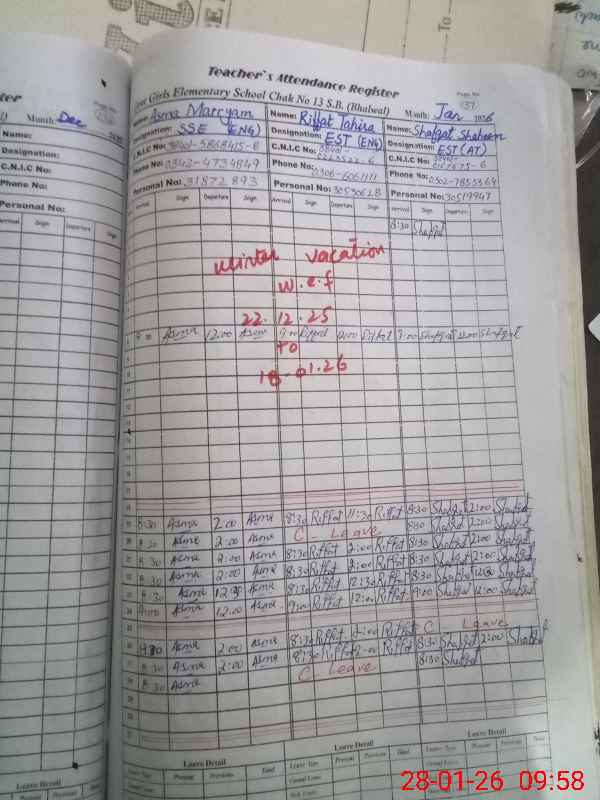 Teacher's Attendance Register
Girls Elementary School Chak No 13 S.B. (Bhalwal) Month: Jan 2026
Page No
Month: Dec
Name:
Designation:
C.N.I.C No:
Phone No:
Personal No:
Name: Asma Marryam
Designation: SSE (ENG)
C.N.I.C No:
Phone No: 0343-4734849
Personal No: 31872893
Name: Riffat Tahira
Designation: EST (ENG)
C.N.I.C No:
Phone No: 0306-6061111
Personal No: 30530628
Name: Shafqat Shaheen
Designation: EST (AT)
C.N.I.C No:
Phone No: 0302-7855369
Personal No: 30519947
Arrival Sign Departure Sign Arrival Sign Departure Sign Arrival Sign Departure Sign
8:30 Shafqat
winter vacation
w.e.f
22.12.25
Asma 12:00 Asma 9:00 Riffat 12:00 Riffat 9:00 Shafqat 12:00 Shafqat
TO
18-01.26
8:30 Asma 2:00 Asma 8:30 Riffat 11:30 Riffat 8:30 Shafqat 2:00 Shafqat
8:30 Asma 2:00 Asma C - Leave 8:30 Shafqat 2:00 Shafqat
8:30 Asma 2:00 Asma 8:30 Riffat 2:00 Riffat 8:30 Shafqat 2:00 Shafqat
8:30 Asma 2:00 Asma 8:30 Riffat 2:00 Riffat 8:30 Shafqat 2:00 Shafqat
8:30 Asma 12:30 Asma 8:30 Riffat 12:30 Riffat 8:30 Shafqat 12:30 Shafqat
9:00 Asma 12:00 Asma 9:00 Riffat 12:00 Riffat 9:00 Shafqat 12:00 Shafqat
8:30 Asma 2:00 Asma 8:30 Riffat 2:00 Riffat C - Leave
8:30 Asma 2:00 Asma 8:30 Riffat 2:00 Riffat 8:30 Shafqat 2:00 Shafqat
8:30 Asma C - Leave 8:30 Shafqat
Leave Detail Leave Detail Leave Detail
Leave Type Present Previous Total Leave Type Present Previous Total Leave Type Present Previous Total
28-01-26 09:58